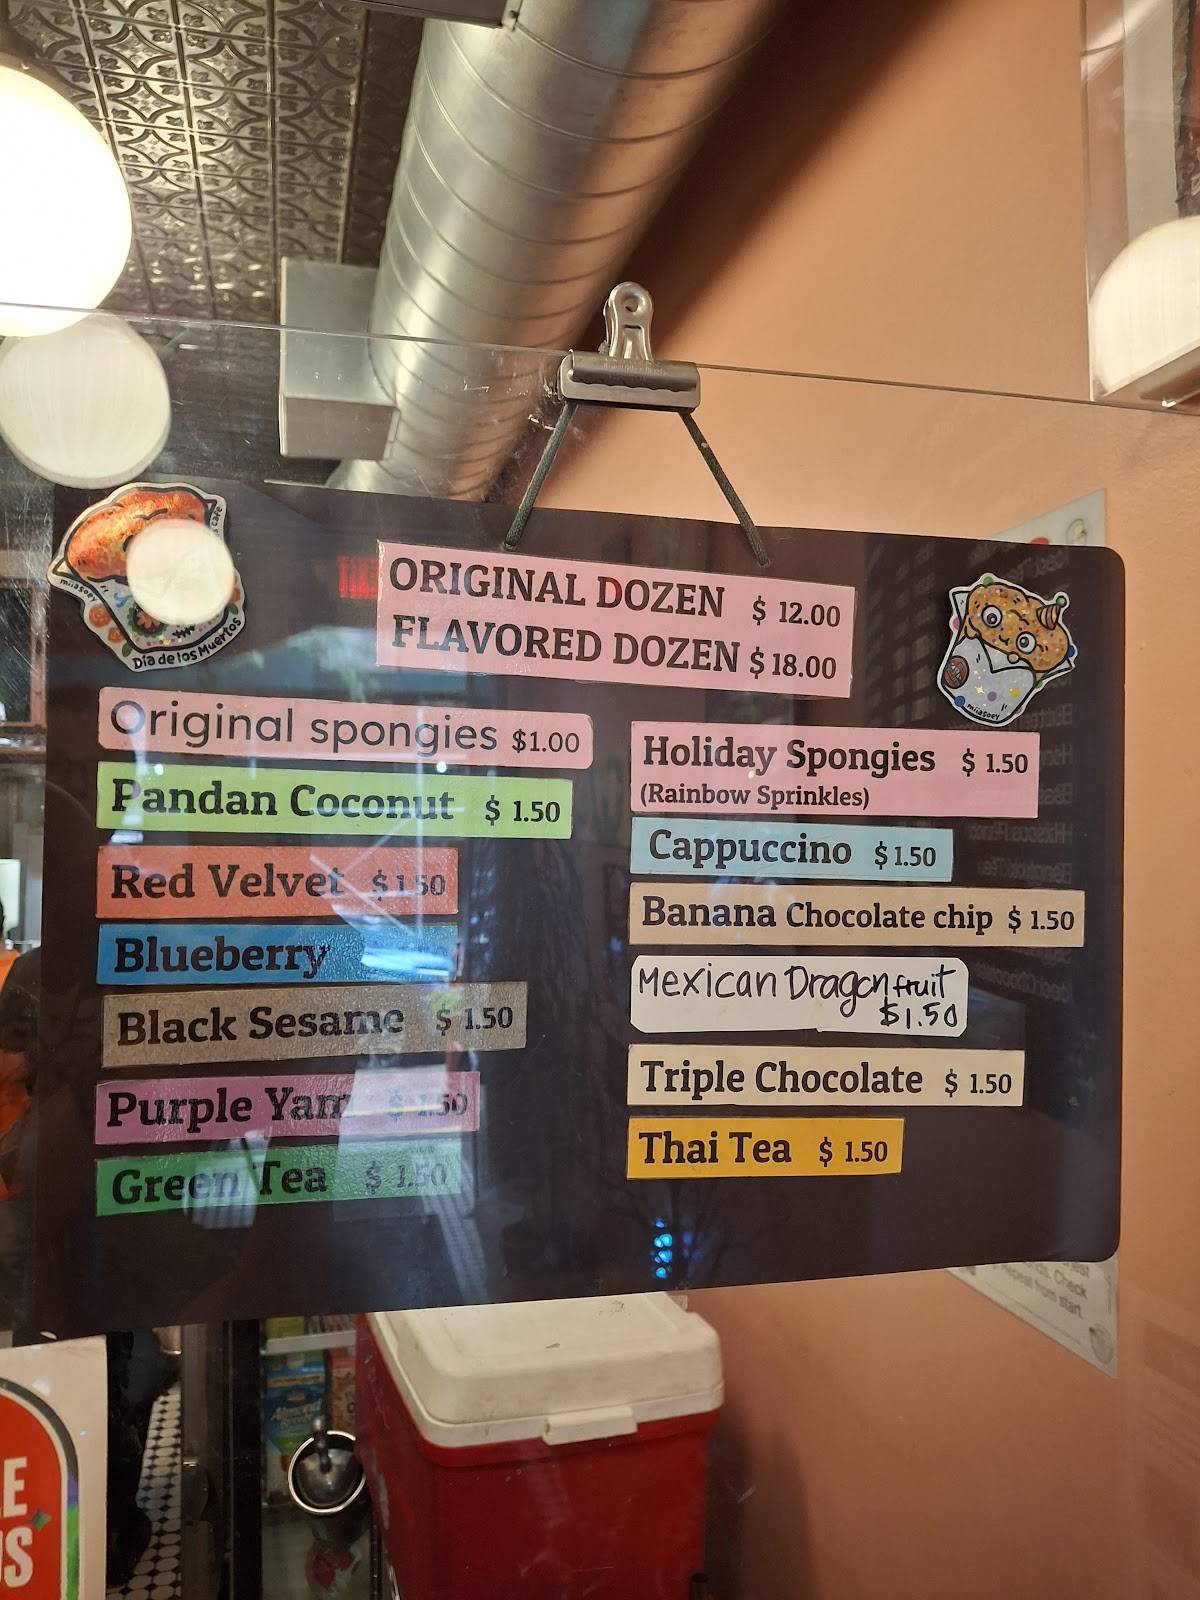 ORIGINAL DOZEN $ 12.00
FLAVORED DOZEN $ 18.00
Original spongies $1.00
Pandan Coconut $ 1.50
Red Velvet $ 1.50
Blueberry
Black Sesame $ 1.50
Purple Yam $ 1.50
Green Tea $ 1.50
Holiday Spongies $ 1.50
(Rainbow Sprinkles)
Cappuccino $ 1.50
Banana Chocolate chip $ 1.50
Mexican Dragon fruit
$1.50
Triple Chocolate $ 1.50
Thai Tea $ 1.50
miiasoey
cafe
Día de los Muertos
miiasoey
Check
repeat from start
Almond